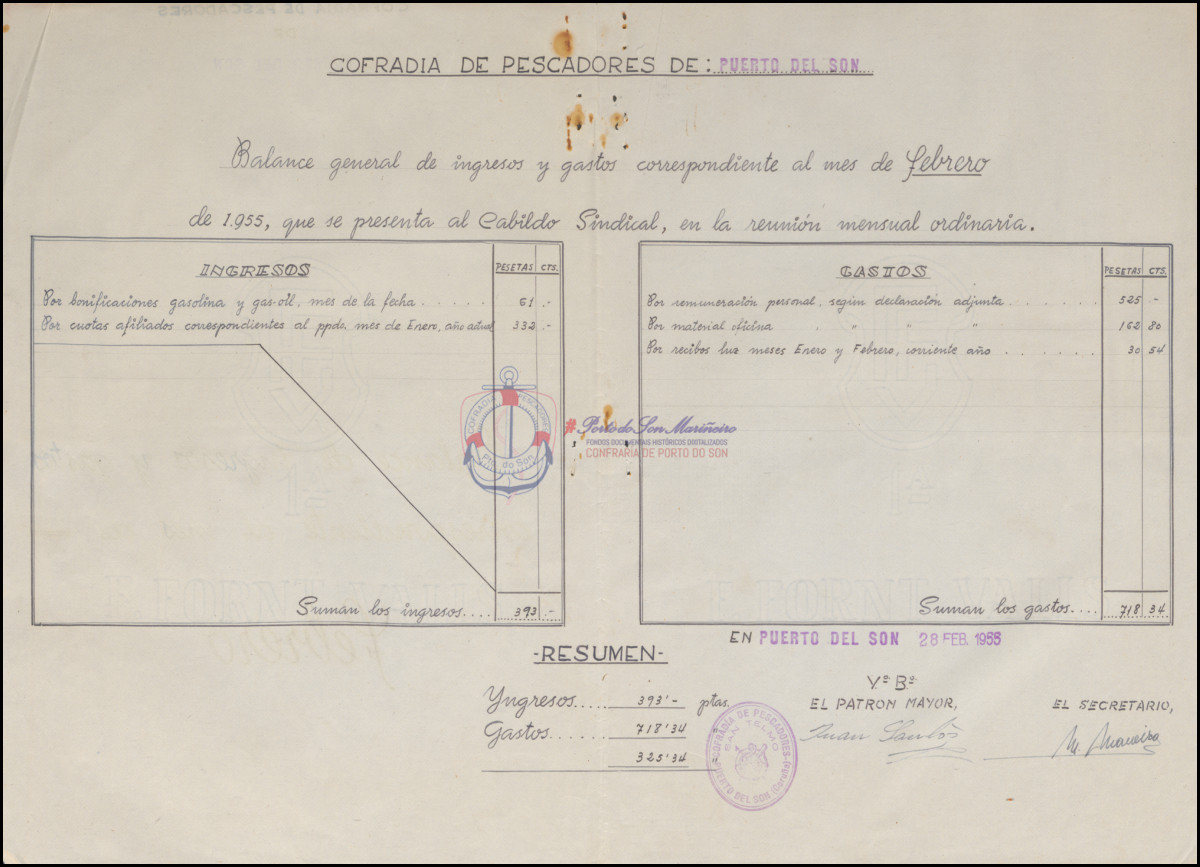 COFRADIA DE PESCADORES DE: PUERTO DEL SON
Balance general de ingresos y gastos correspondiente al mes de febrero
de 1.955, que se presenta al Cabildo Sindical, en la reunión mensual ordinaria.
INGRESOS PESETAS CTS.
Por bonificaciones gasolina y gas-oil, mes de la fecha . . . . . . 61 .-
Por cuotas afiliados correspondientes al ppdo. mes de Enero, año actual 332 .-
Suman los ingresos.... 393 .-
GASTOS PESETAS CTS.
Por remuneración personal, según declaración adjunta . . . . . . . . 525 .-
Por material oficina " " " 162 80
Por recibos luz meses Enero y Febrero, corriente año . . . . . . . . 30 54
Suman los gastos.... 718 34
COFRADIA PESCADORES
Pto. do Son
#Porto do Son Mariñeiro
FONDOS DOCUMENTAIS HISTÓRICOS DIXITALIZADOS
CONFRARÍA DE PORTO DO SON
EN PUERTO DEL SON 28 FEB. 1955
-RESUMEN-
Yngresos..... 393'- ptas.
Gastos...... 718'34
325'34
Vº Bº
EL PATRON MAYOR,
Juan Santos
EL SECRETARIO,
COFRADIA DE PESCADORES
SAN TELMO
PUERTO DEL SON (Coruña)